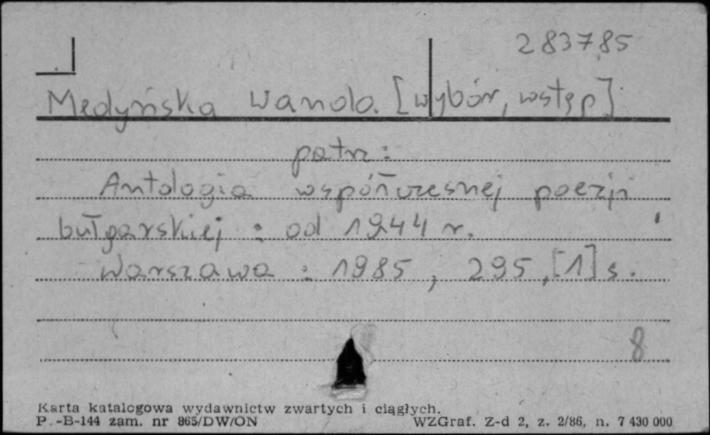 283785
Medyńska Wanda [wybór, wstęp]
patrz:
Antologia współczesnej poezji
bułgarskiej : od 1944 r.
Warszawa : 1985, 295, [1] s.
8
Karta katalogowa wydawnictw zwartych i ciągłych.
P.-B-144 zam. nr 865/DW/ON WZGraf. Z-d 2, z. 2/86, n. 7 430 000